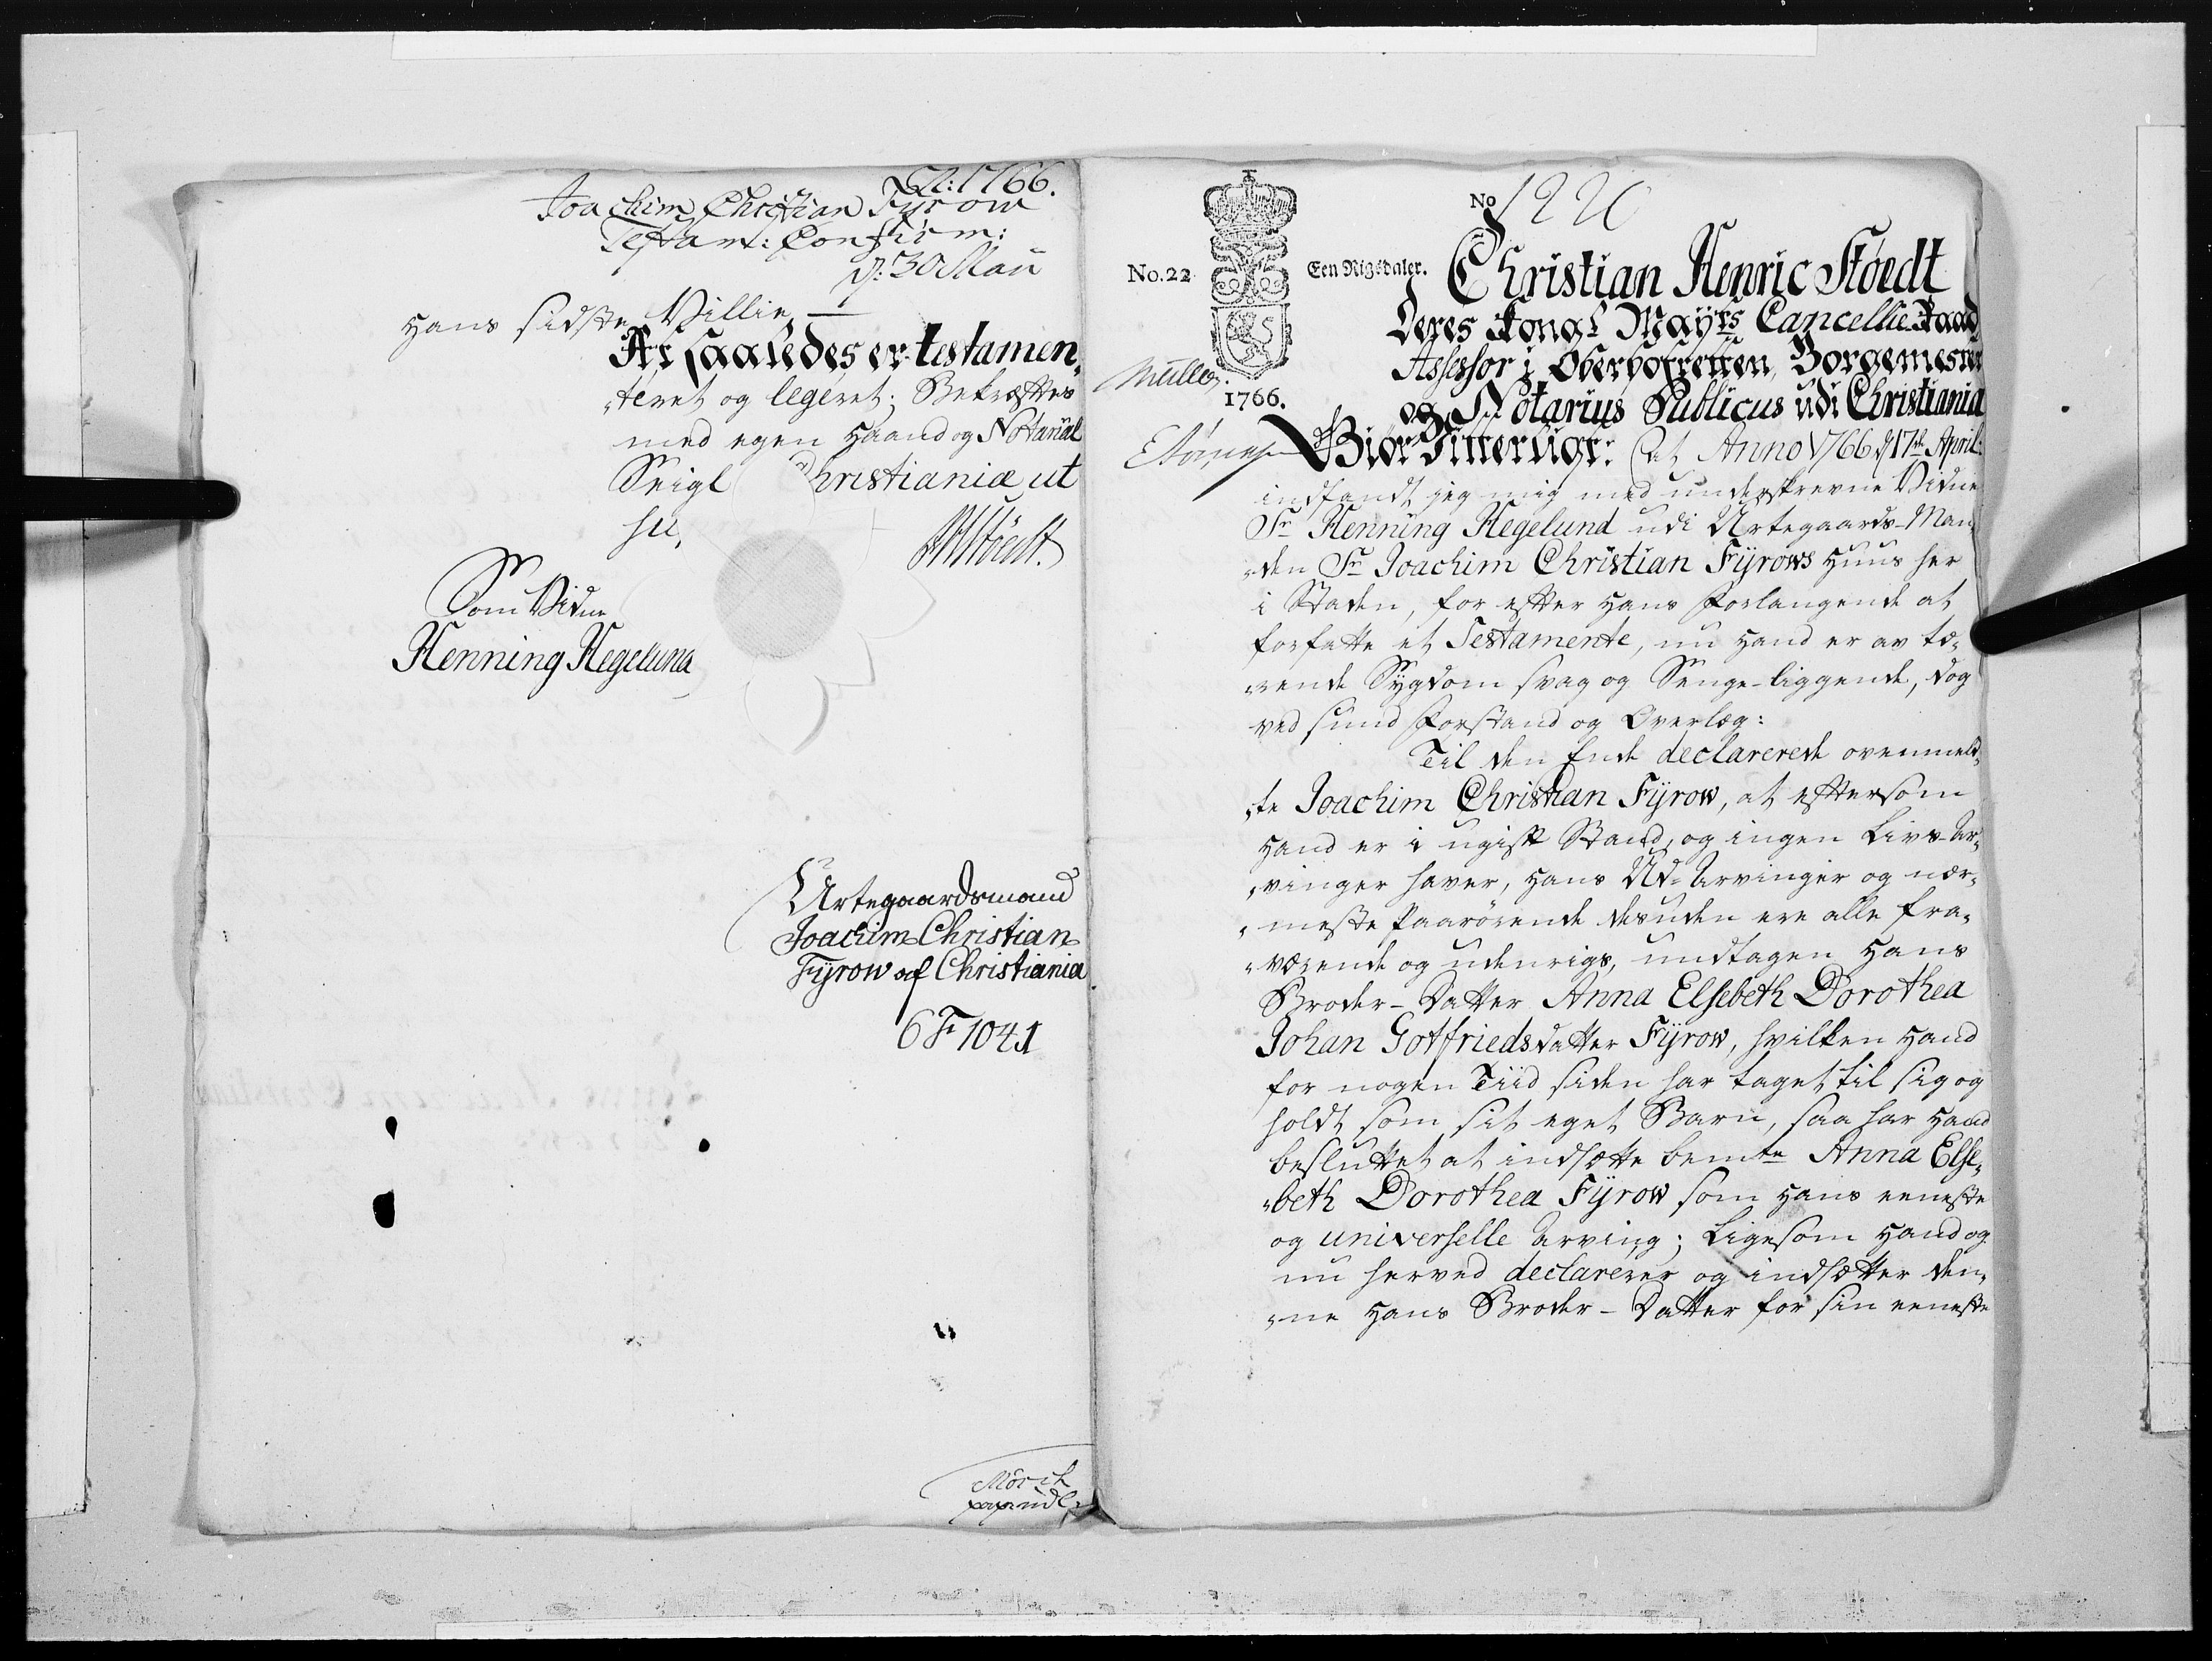 A: 1766.
Joachim Christian Fyrow
Testam: Confirm:
d: 30 Maii
Hans sidste Villie.
At saaledes er testamen-
-teret og legeret; Bekræftes
med egen Haand og Notarial
Seigl Christianiæ ut
su.
CHStöedt.
Som Vidne
Henning Hegelund
Urtegaardsmand
Joachim Christian
Fyrow af Christiania
6 F 1041
No
No. 22
Een Rigsdaler.
Müller.
1766.
Christian Henric Stöedt
Deres Kongl Mayts Cancellie Raad
Assessor i Oberhofretten, Borgemester
og Notarius Publicus udi Christiania
Giör Vitterligt: At Anno 1766 d 17de April:
indfandt jeg mig med underskrevne Vidne
Sr Henning Hegelund udi Urtegaards-Man-
-den Sr Joachim Christian Fyrows Huus her
i Staden, for efter Hans Forlangende at
forfatte et Testamente, nu Hand er av tæ-
-rende Sygdom svag og Senge-liggende, dog
ved sund Forstand og Overlæg:
Til den Ende declarerede ovenmeld-
-te Joachim Christian Fyrow, at eftersom
Hand er i ugift Stand, og ingen Livs-Ar-
-vinger haver, Hans Ud-Arvinger og nær-
-meste Paarörende desuden ere alle fra-
-værende og udenrigs, undtagen Hans
Broder-Datter Anna Elsebeth Dorothea
Johan Gotfriedsdatter Fyrow, hvilken Hand
for nogen Tiid siden har taget til sig og
holdt som sit eget Barn, saa har Hand
besluttet at indsætte bemte Anna Else-
-beth Dorothea Fyrow som Hans eeneste
og universelle Arving; Ligesom Hand og
nu herved declarerer og indsætter den-
-ne Hans Broder-Datter for sin eeneste